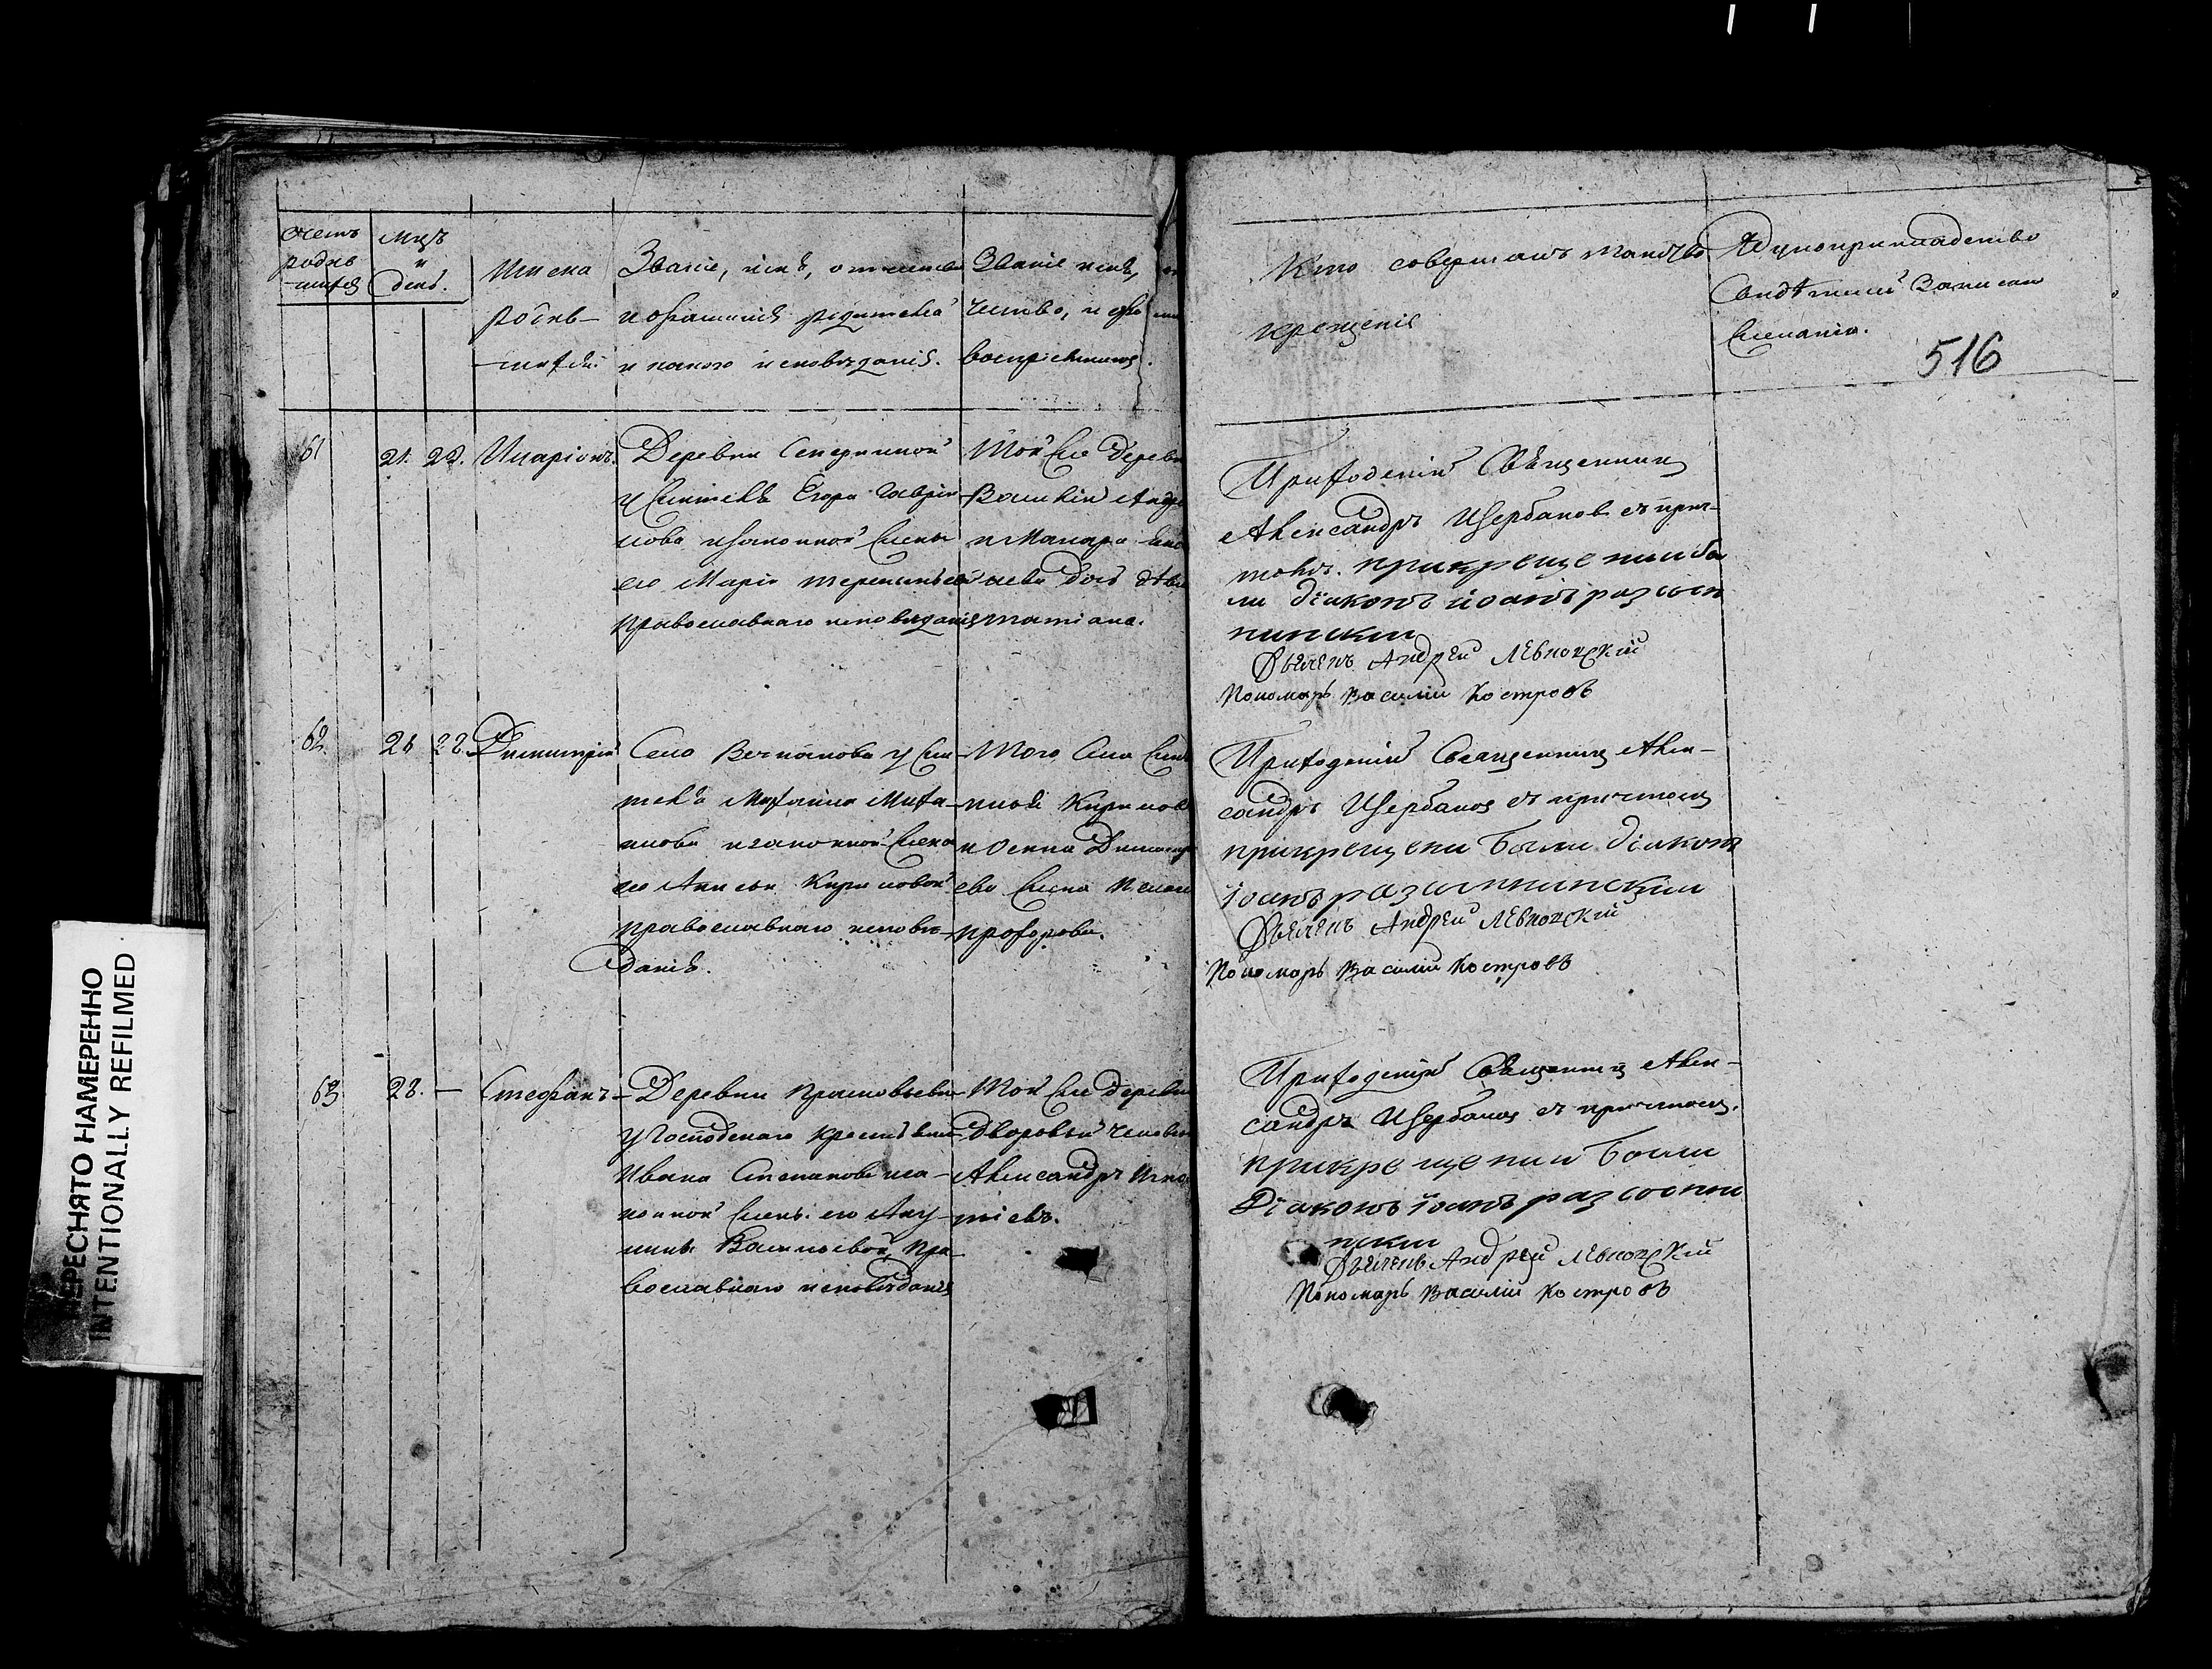 Счетъ
родив
шихся
Мцъ
и
день.
Имена
родив-
шихся.
Званіе, имя, отчество
и фамилія родителей
и какого исповеданія.
Званіе имя, от
чество, и фа
воспріемниковъ.
Кто совершалъ таинство
крещенія
Рукоприкладство
Свидѣтелей записи
по желанію.
516
61
21. 22. Иларіонъ.
Деревни
у Егора Гаври
лова и законной жены
его Маріи Терентьевой
православнаго исповеданія
Той же деревни
Василій Андре
и Макара
дочь дѣвица
татіана.
Приходскій Священникъ
Александръ Щербаковъ съ прич-
томъ. при крещеніи бы
ли діаконъ іоанъ
Дьячекъ Андрей Левковскій
Пономарь Василій Костровъ
62.
21 22. Димитрій
Село у
Михайла Миха-
лова и законной жены
его Анисьи Кириловой
православнаго испове-
данія.
Того села
Кирилов
и Осипа Димитр
ева жена Пелаг
прохорова.
Приходскій Священникъ Алек-
сандръ Щербаковъ съ причтомъ
при крещеніи были діаконъ
іоанъ
Дьячекъ Андрей Левковскій
Пономарь Василій Костровъ
63
22. —
Стефанъ-
Деревни Прасковьевки
у Господскаго крестьянина
Ивана Степанова и за-
конной жены его Аку-
лины Васильевой, пра-
вославнаго исповеданія
Той же деревни
дворовый человекъ
Александръ Игна
тіевъ.
Приходскій Священникъ Алек-
сандръ Щербаковъ съ причтомъ.
при крещеніи были
Діаконъ іоанъ
Дьячекъ Андрей Левковскій
Пономарь Василій Костровъ
ПЕРЕСНЯТО НАМЕРЕННО
INTENTIONALLY REFILMED